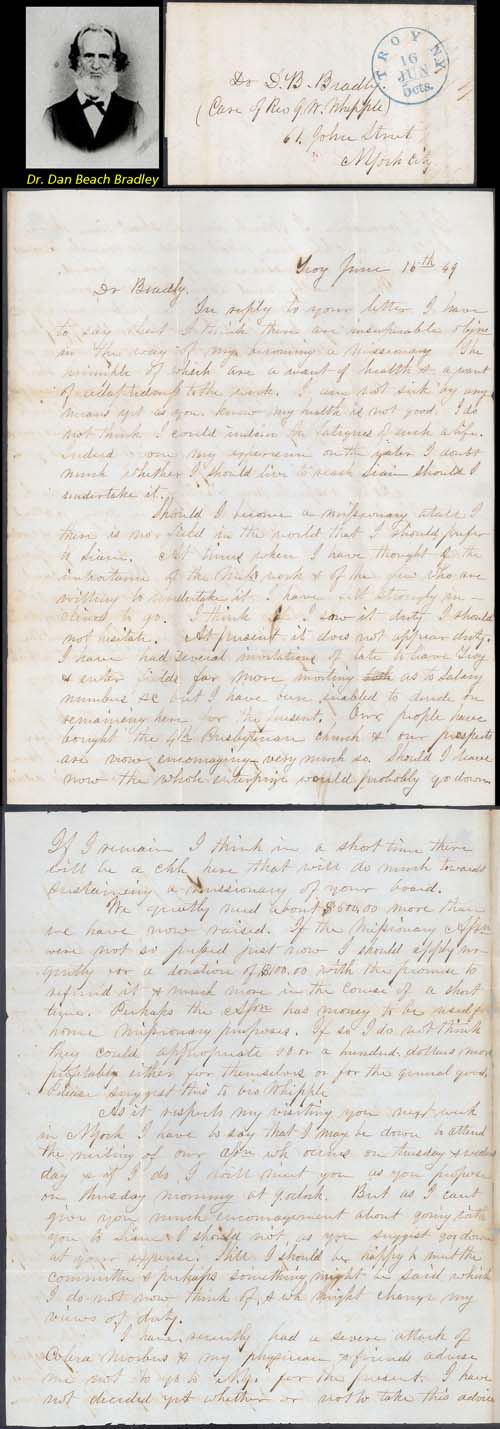 Dr. Dan Beach Bradley
TROY N.Y.
16
JUN
5cts.
Dr D. B. Bradly
(Care of Rev G. W. Whipple)
61. John Street
N York city
Troy June 16th 49
Dr Bradly.
In reply to your letter I have
to say that I think there are insuperable objns
in the way of my becoming a missionary. The
principle of which are a want of health & a want
of adaptedness to the work. I am not sick by any
means yet as you know my health is not good. I do
not think I could endure the fatigues of such a life.
Indeed from my experience on the water I doubt
much whether I should live to reach Siam should I
undertake it.
Should I become a missionary atall I
there is no field in the world that I should prefer
to Siam. At times when I have thought of the
importance of the work & of the few who are
willing to undertake it I have felt strongly in-
clined to go. I think if I saw it duty I should
not hesitate. At present it does not appear duty.
I have had several invitations of late to leave Troy
& enter fields far more inviting as to salary
numbers &c but I have been enabled to decide on
remaining here for the present. Our people have
bought the 4th Presbyterian church & our prospects
are now encouraging very much so. Should I leave
now the whole enterprize would probably go down
If I remain I think in a short time there
will be a chh here that will do much towards
sustaining a missionary of your board.
We greatly need about $600.00 more than
we have now raised. If the Missionary Assn
were not so pressed just now I should apply
for a donation of $100.00 with the promise to
refund it & much more in the course of a short
time. Perhaps the Assn has money to be used for
home missionary purposes. If so I do not think
they could appropriate 50 or a hundred dollars more
profitably either for themselves or for the general good.
Please suggest this to bro Whipple
As it respects my visiting you next week
in N York I have to say that I may be down to attend
the meeting of our assn wh occurs on tuesday & wednes
day & if I do I will meet you as you propose
on thursday morning at 9 oclok. But as I cant
give you much encouragement about going with
you to Siam I should not as you suggest go down
at your expense. Still I should be happy to meet the
committee & perhaps something might be said which
I do not now think of, & wh might change my
views of duty.
I have recently had a severe attack of
Colera Morbus & my physician & friends advise
me not to go to N.Y. for the present. I have
not decided yet whether or not to take this advice